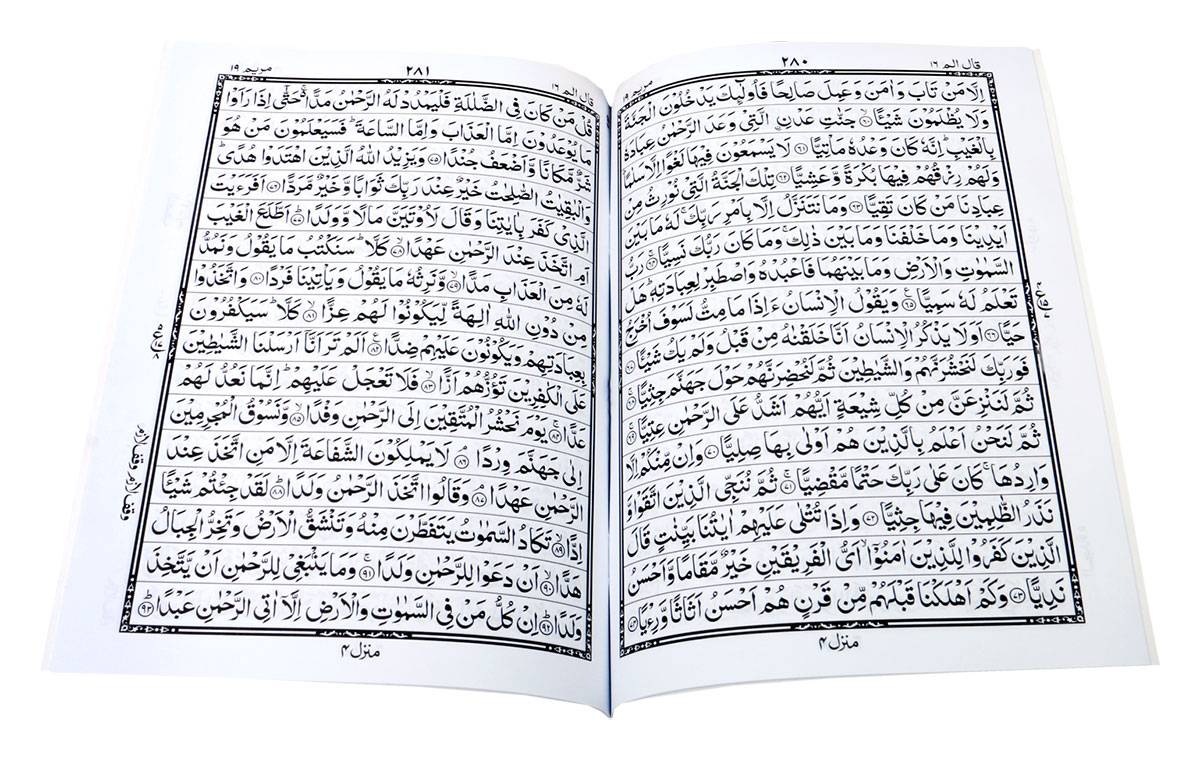 قال الم ١٦
٢٨٠
مريم ١٩
اِلَّا مَنْ تَابَ وَاٰمَنَ وَعَمِلَ صَالِحًا فَاُولٰٓئِكَ يَدْخُلُوْنَ الْجَنَّةَ
وَلَا يُظْلَمُوْنَ شَيْئًا ۙ﴿۶۰﴾ جَنّٰتِ عَدْنِ ۨ الَّتِيْ وَعَدَ الرَّحْمٰنُ عِبَادَهٗ
بِالْغَيْبِ ؕ اِنَّهٗ كَانَ وَعْدُهٗ مَاْتِيًّا ﴿۶۱﴾ لَا يَسْمَعُوْنَ فِيْهَا لَغْوًا اِلَّا سَلٰمًا ؕ
وَلَهُمْ رِزْقُهُمْ فِيْهَا بُكْرَةً وَّعَشِيًّا ﴿۶۲﴾ تِلْكَ الْجَنَّةُ الَّتِيْ نُوْرِثُ مِنْ
عِبَادِنَا مَنْ كَانَ تَقِيًّا ﴿۶۳﴾ وَمَا نَتَنَزَّلُ اِلَّا بِاَمْرِ رَبِّكَ ۚ لَهٗ مَا بَيْنَ
اَيْدِيْنَا وَمَا خَلْفَنَا وَمَا بَيْنَ ذٰلِكَ ۚ وَمَا كَانَ رَبُّكَ نَسِيًّا ﴿۶۴﴾ رَبُّ
السَّمٰوٰتِ وَالْاَرْضِ وَمَا بَيْنَهُمَا فَاعْبُدْهُ وَاصْطَبِرْ لِعِبَادَتِهٖ ؕ هَلْ
تَعْلَمُ لَهٗ سَمِيًّا ﴿۶۵﴾ وَيَقُوْلُ الْاِنْسَانُ ءَاِذَا مَا مِتُّ لَسَوْفَ اُخْرَجُ
حَيًّا ﴿۶۶﴾ اَوَلَا يَذْكُرُ الْاِنْسَانُ اَنَّا خَلَقْنٰهُ مِنْ قَبْلُ وَلَمْ يَكُ شَيْئًا ﴿۶۷﴾
فَوَرَبِّكَ لَنَحْشُرَنَّهُمْ وَالشَّيٰطِيْنَ ثُمَّ لَنُحْضِرَنَّهُمْ حَوْلَ جَهَنَّمَ جِثِيًّا ۚ﴿۶۸﴾
ثُمَّ لَنَنْزِعَنَّ مِنْ كُلِّ شِيْعَةٍ اَيُّهُمْ اَشَدُّ عَلَى الرَّحْمٰنِ عِتِيًّا ۚ﴿۶۹﴾
ثُمَّ لَنَحْنُ اَعْلَمُ بِالَّذِيْنَ هُمْ اَوْلٰى بِهَا صِلِيًّا ﴿۷۰﴾ وَاِنْ مِّنْكُمْ اِلَّا
وَارِدُهَا ۚ كَانَ عَلٰى رَبِّكَ حَتْمًا مَّقْضِيًّا ۚ﴿۷۱﴾ ثُمَّ نُنَجِّي الَّذِيْنَ اتَّقَوْا وَّ
نَذَرُ الظّٰلِمِيْنَ فِيْهَا جِثِيًّا ﴿۷۲﴾ وَاِذَا تُتْلٰى عَلَيْهِمْ اٰيٰتُنَا بَيِّنٰتٍ قَالَ
الَّذِيْنَ كَفَرُوْا لِلَّذِيْنَ اٰمَنُوْٓا ۙ اَيُّ الْفَرِيْقَيْنِ خَيْرٌ مَّقَامًا وَّاَحْسَنُ
نَدِيًّا ﴿۷۳﴾ وَكَمْ اَهْلَكْنَا قَبْلَهُمْ مِّنْ قَرْنٍ هُمْ اَحْسَنُ اَثَاثًا وَّرِءْيًا ﴿۷۴﴾
منزل ۴
قال الم ١٦
٢٨١
مريم ١٩
قُلْ مَنْ كَانَ فِي الضَّلٰلَةِ فَلْيَمْدُدْ لَهُ الرَّحْمٰنُ مَدًّا ۚ حَتّٰٓى اِذَا رَاَوْا
مَا يُوْعَدُوْنَ اِمَّا الْعَذَابَ وَاِمَّا السَّاعَةَ ؕ فَسَيَعْلَمُوْنَ مَنْ هُوَ
شَرٌّ مَّكَانًا وَّاَضْعَفُ جُنْدًا ﴿۷۵﴾ وَيَزِيْدُ اللّٰهُ الَّذِيْنَ اهْتَدَوْا هُدًى ؕ
وَالْبٰقِيٰتُ الصّٰلِحٰتُ خَيْرٌ عِنْدَ رَبِّكَ ثَوَابًا وَّخَيْرٌ مَّرَدًّا ﴿۷۶﴾ اَفَرَءَيْتَ
الَّذِيْ كَفَرَ بِاٰيٰتِنَا وَقَالَ لَاُوْتَيَنَّ مَالًا وَّوَلَدًا ؕ﴿۷۷﴾ اَطَّلَعَ الْغَيْبَ
اَمِ اتَّخَذَ عِنْدَ الرَّحْمٰنِ عَهْدًا ۙ﴿۷۸﴾ كَلَّا ؕ سَنَكْتُبُ مَا يَقُوْلُ وَنَمُدُّ
لَهٗ مِنَ الْعَذَابِ مَدًّا ۙ﴿۷۹﴾ وَّنَرِثُهٗ مَا يَقُوْلُ وَيَاْتِيْنَا فَرْدًا ﴿۸۰﴾ وَاتَّخَذُوْا
مِنْ دُوْنِ اللّٰهِ اٰلِهَةً لِّيَكُوْنُوْا لَهُمْ عِزًّا ۙ﴿۸۱﴾ كَلَّا ؕ سَيَكْفُرُوْنَ
بِعِبَادَتِهِمْ وَيَكُوْنُوْنَ عَلَيْهِمْ ضِدًّا ﴿۸۲﴾ اَلَمْ تَرَ اَنَّآ اَرْسَلْنَا الشَّيٰطِيْنَ
عَلَى الْكٰفِرِيْنَ تَؤُزُّهُمْ اَزًّا ۙ﴿۸۳﴾ فَلَا تَعْجَلْ عَلَيْهِمْ ؕ اِنَّمَا نَعُدُّ لَهُمْ
عَدًّا ۚ﴿۸۴﴾ يَوْمَ نَحْشُرُ الْمُتَّقِيْنَ اِلَى الرَّحْمٰنِ وَفْدًا ۙ﴿۸۵﴾ وَّنَسُوْقُ الْمُجْرِمِيْنَ
اِلٰى جَهَنَّمَ وِرْدًا ۘ﴿۸۶﴾ لَا يَمْلِكُوْنَ الشَّفَاعَةَ اِلَّا مَنِ اتَّخَذَ عِنْدَ
الرَّحْمٰنِ عَهْدًا ۘ﴿۸۷﴾ وَقَالُوا اتَّخَذَ الرَّحْمٰنُ وَلَدًا ؕ﴿۸۸﴾ لَقَدْ جِئْتُمْ شَيْئًا
اِدًّا ۙ﴿۸۹﴾ تَكَادُ السَّمٰوٰتُ يَتَفَطَّرْنَ مِنْهُ وَتَنْشَقُّ الْاَرْضُ وَتَخِرُّ الْجِبَالُ
هَدًّا ۙ﴿۹۰﴾ اَنْ دَعَوْا لِلرَّحْمٰنِ وَلَدًا ۚ﴿۹۱﴾ وَمَا يَنْۢبَغِيْ لِلرَّحْمٰنِ اَنْ يَّتَّخِذَ
وَلَدًا ؕ﴿۹۲﴾ اِنْ كُلُّ مَنْ فِي السَّمٰوٰتِ وَالْاَرْضِ اِلَّآ اٰتِي الرَّحْمٰنِ عَبْدًا ؕ﴿۹۳﴾
وقف لازم وقف لازم
منزل ۴